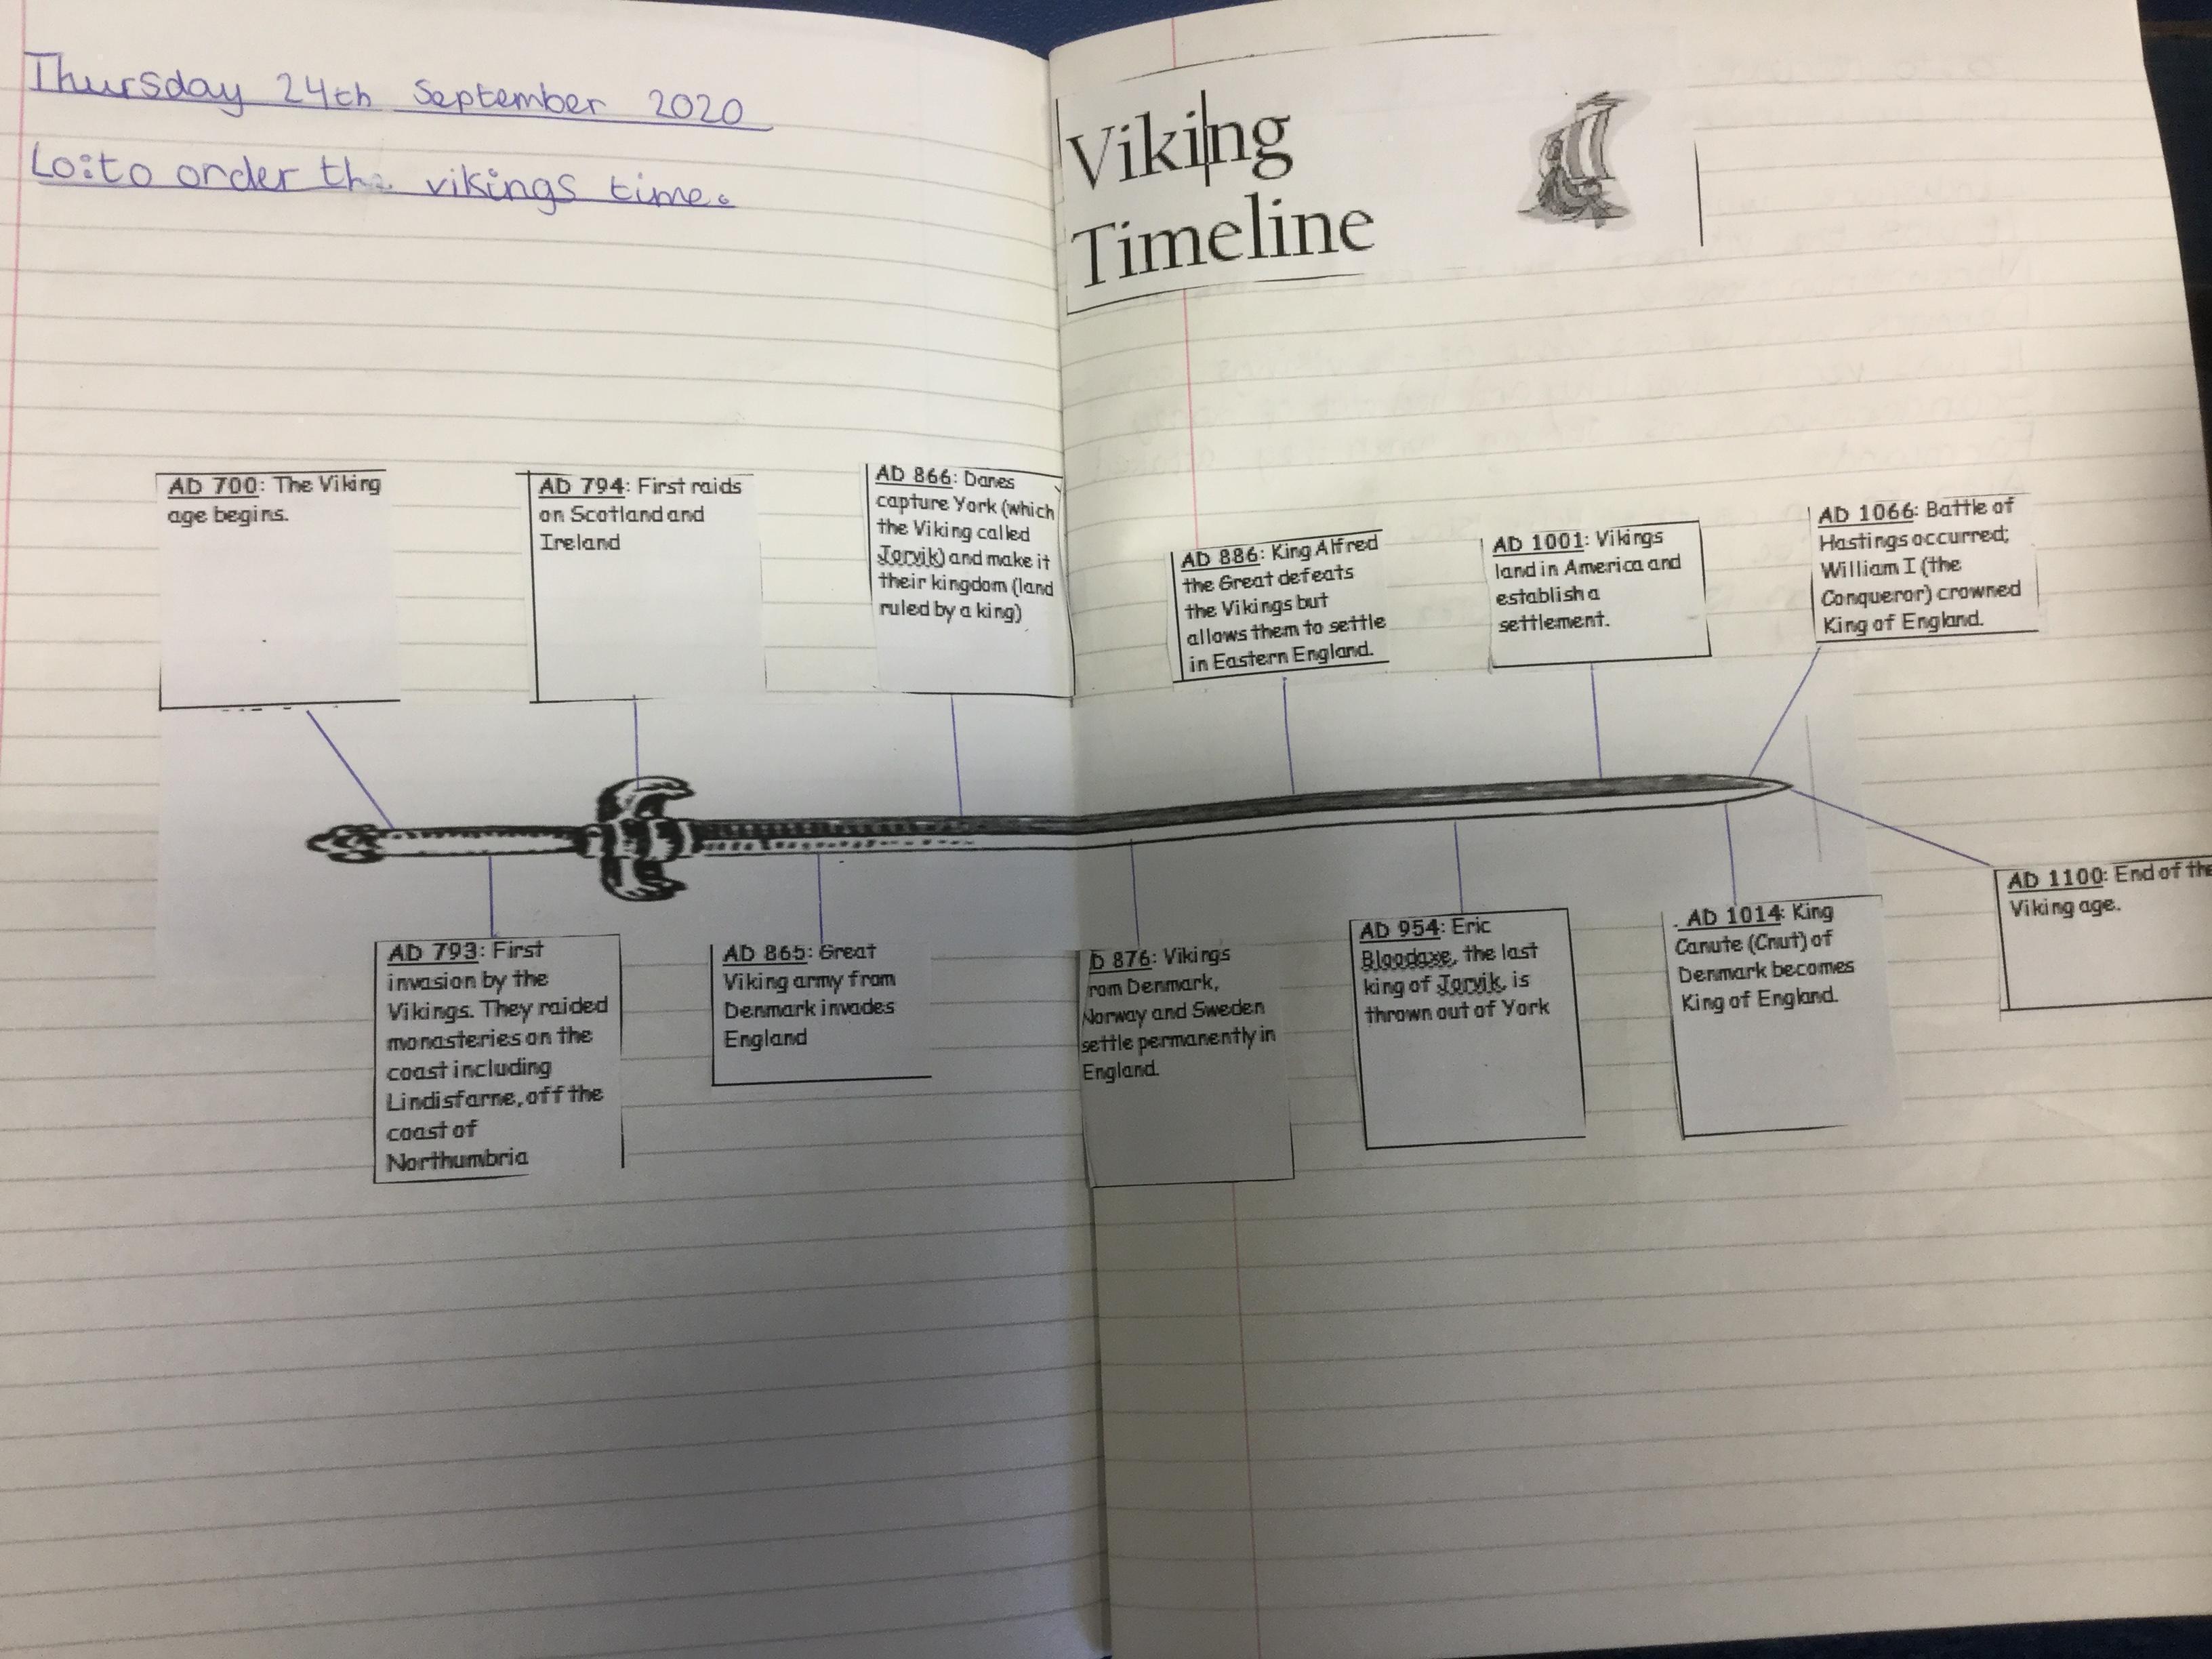 Thursday 24th September 2020
Lo: to order the vikings time.
Viking
Timeline
AD 700: The Viking
age begins.
AD 794: First raids
on Scotland and
Ireland
AD 866: Danes
capture York (which
the Viking called
Jorvik) and make it
their kingdom (land
ruled by a king)
AD 886: King Alfred
the Great defeats
the Vikings but
allows them to settle
in Eastern England.
AD 1001: Vikings
land in America and
establish a
settlement.
AD 1066: Battle of
Hastings occurred;
William I (the
Conqueror) crowned
King of England.
AD 793: First
invasion by the
Vikings. They raided
monasteries on the
coast including
Lindisfarne, off the
coast of
Northumbria
AD 865: Great
Viking army from
Denmark invades
England
D 876: Vikings
rom Denmark,
Norway and Sweden
settle permanently in
England.
AD 954: Eric
Bloodaxe, the last
king of Jorvik, is
thrown out of York
AD 1014: King
Canute (Cnut) of
Denmark becomes
King of England.
AD 1100: End of the
Viking age.